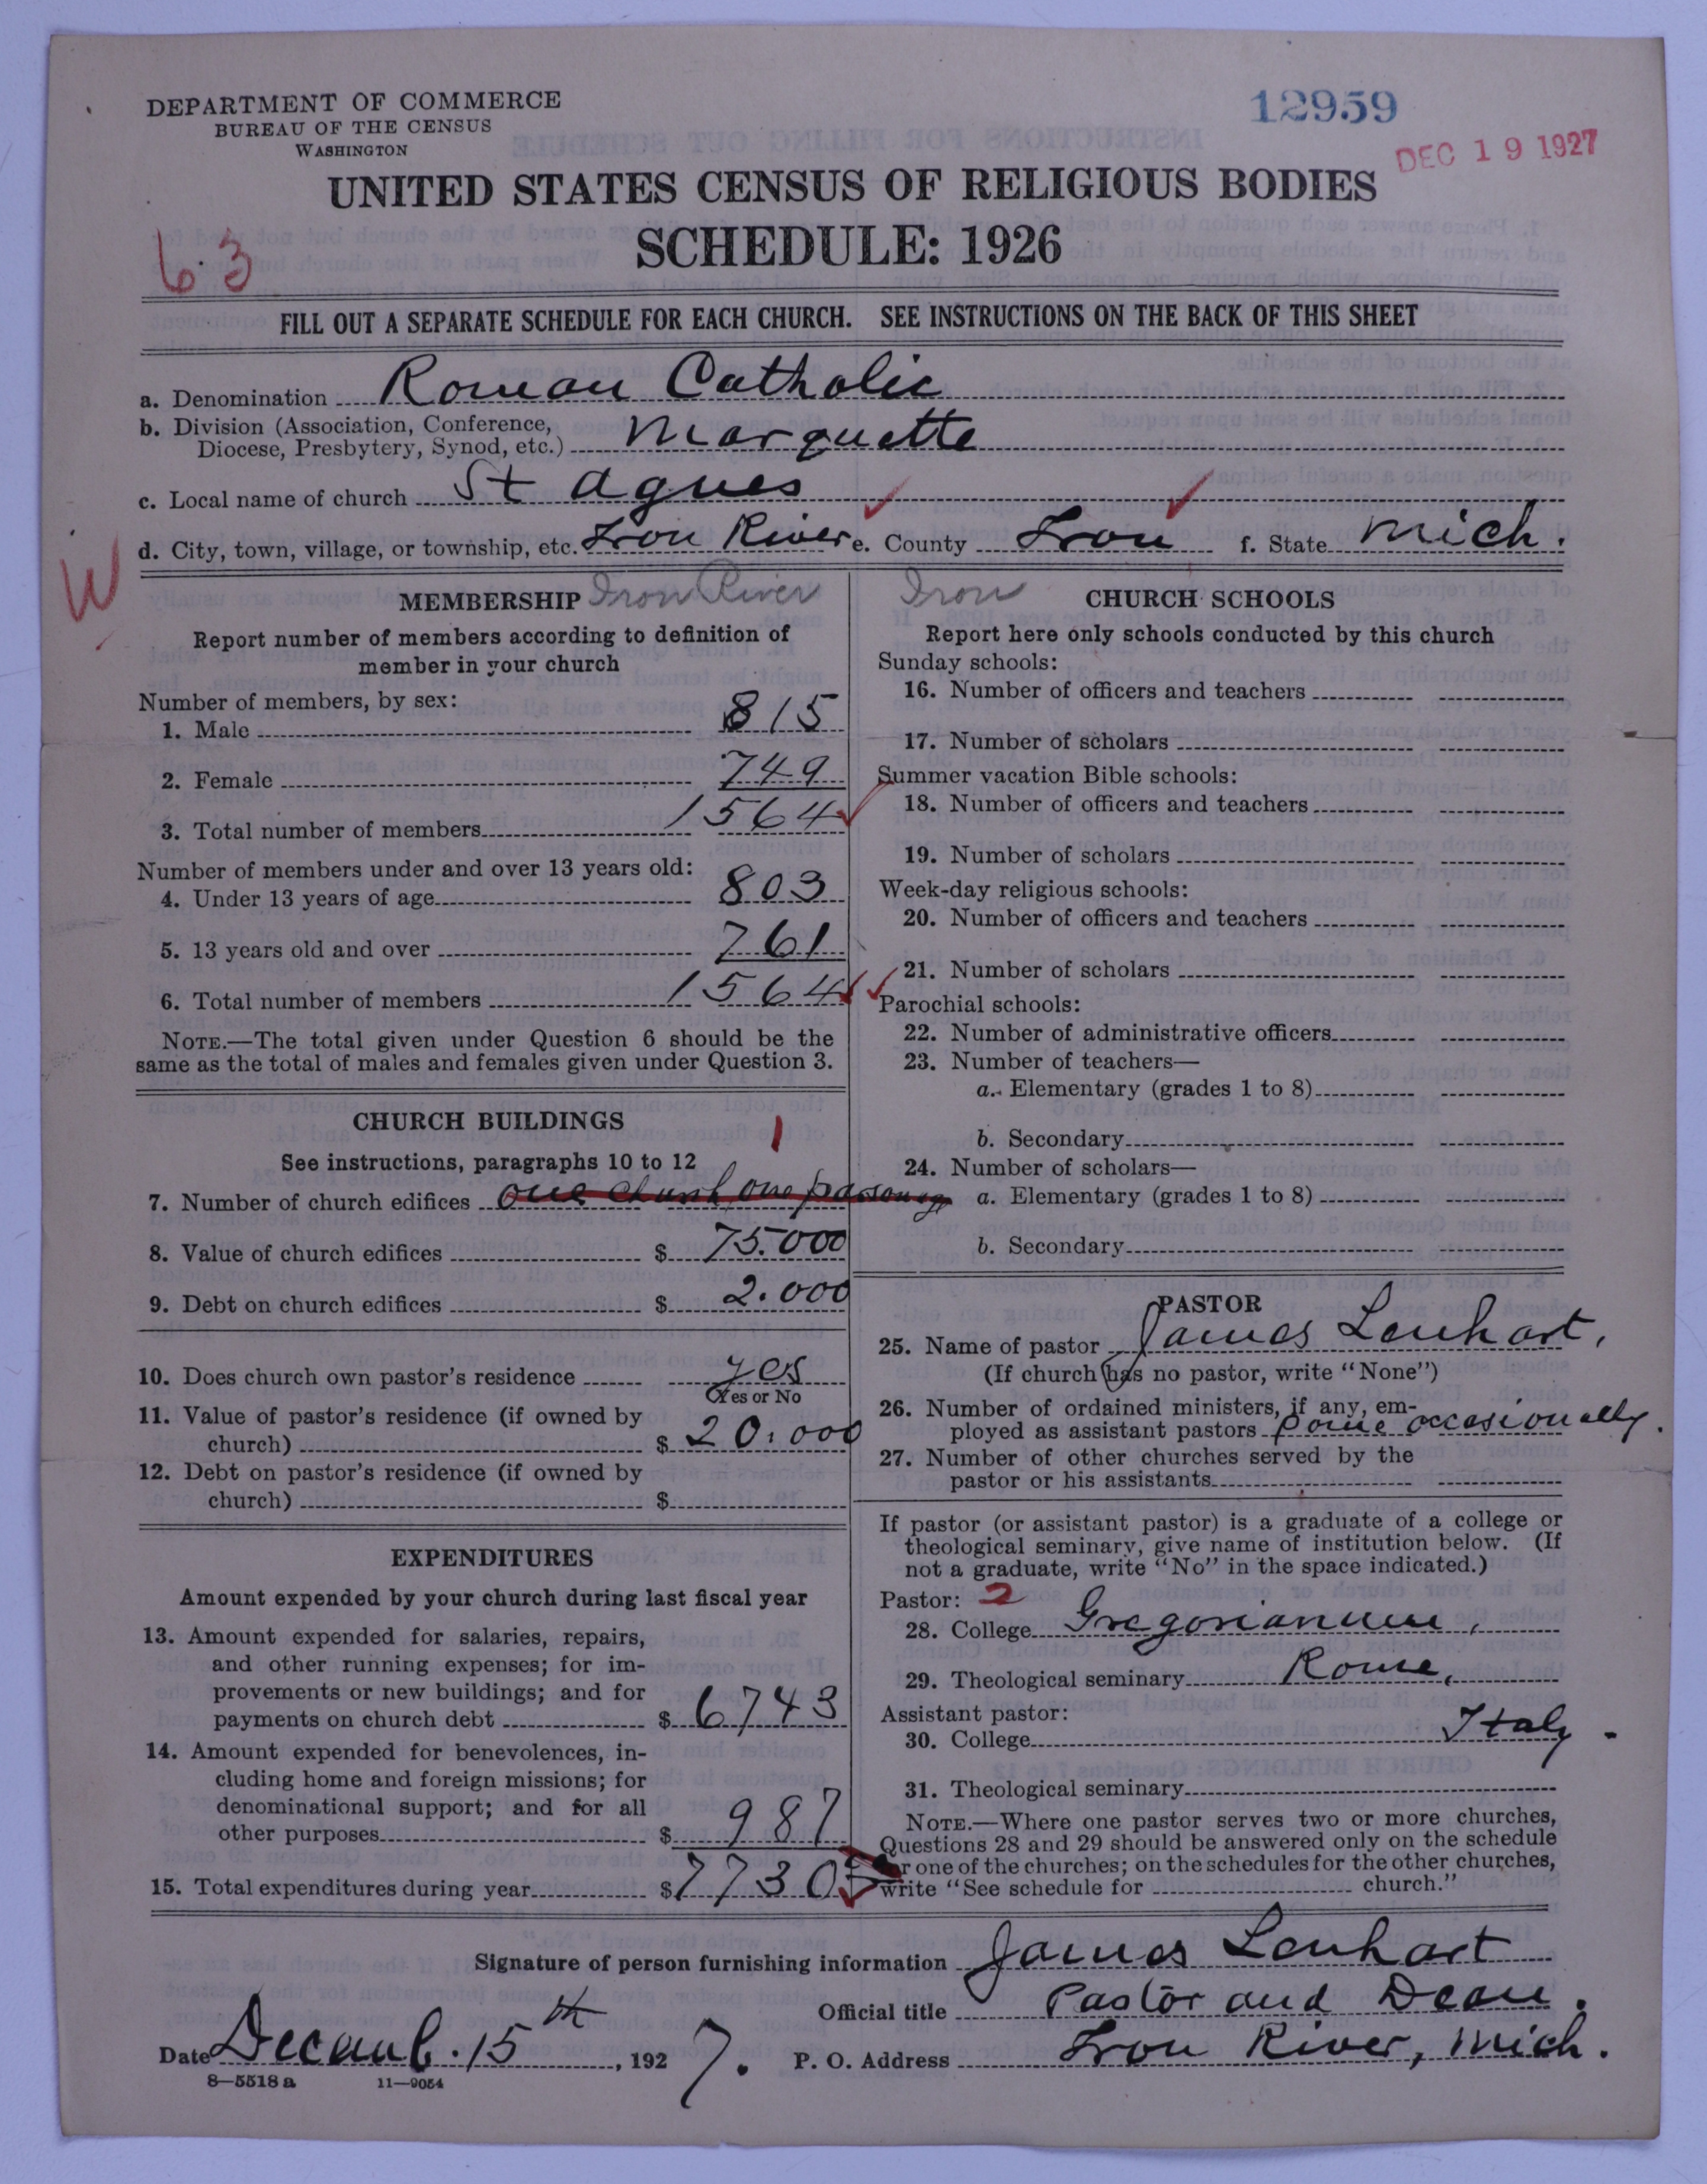 DEPARTMENT OF COMMERCE
BUREAU OF THE CENSUS
WASHINGTON
12959
DEC 19 1927
UNITED STATES CENSUS OF RELIGIOUS BODIES
SCHEDULE: 1926
63
FILL OUT A SEPARATE SCHEDULE FOR EACH CHURCH. SEE INSTRUCTIONS ON THE BACK OF THIS SHEET
a. Denomination Roman Catholic
b. Division (Association, Conference,
Diocese, Presbytery, Synod, etc.) Marquette
c. Local name of church St Agnes
d. City, town, village, or township, etc. Iron River e. County Iron f. State Mich.
W
MEMBERSHIP Iron River
Report number of members according to definition of
member in your church
Number of members, by sex:
1. Male 815
2. Female 749
3. Total number of members 1564
Number of members under and over 13 years old:
4. Under 13 years of age 803
5. 13 years old and over 761
6. Total number of members 1564
NOTE.—The total given under Question 6 should be the
same as the total of males and females given under Question 3.
CHURCH BUILDINGS 1
See instructions, paragraphs 10 to 12
7. Number of church edifices one church, one parsonage
8. Value of church edifices $ 75.000
9. Debt on church edifices $ 2.000
10. Does church own pastor's residence yes
Yes or No
11. Value of pastor's residence (if owned by
church) $ 20.000
12. Debt on pastor's residence (if owned by
church) $
EXPENDITURES
Amount expended by your church during last fiscal year
13. Amount expended for salaries, repairs,
and other running expenses; for im-
provements or new buildings; and for
payments on church debt $ 6743
14. Amount expended for benevolences, in-
cluding home and foreign missions; for
denominational support; and for all
other purposes $ 987
15. Total expenditures during year $ 7730
Iron CHURCH SCHOOLS
Report here only schools conducted by this church
Sunday schools:
16. Number of officers and teachers
17. Number of scholars
Summer vacation Bible schools:
18. Number of officers and teachers
19. Number of scholars
Week-day religious schools:
20. Number of officers and teachers
21. Number of scholars
Parochial schools:
22. Number of administrative officers
23. Number of teachers—
a. Elementary (grades 1 to 8)
b. Secondary
24. Number of scholars—
a. Elementary (grades 1 to 8)
b. Secondary
PASTOR
25. Name of pastor James Lenhart.
(If church has no pastor, write "None")
26. Number of ordained ministers, if any, em-
ployed as assistant pastors some occasionally.
27. Number of other churches served by the
pastor or his assistants
If pastor (or assistant pastor) is a graduate of a college or
theological seminary, give name of institution below. (If
not a graduate, write "No" in the space indicated.)
Pastor: 2
28. College Gregorianum,
29. Theological seminary Rome,
Assistant pastor:
30. College Italy -
31. Theological seminary
NOTE.—Where one pastor serves two or more churches,
Questions 28 and 29 should be answered only on the schedule
for one of the churches; on the schedules for the other churches,
write "See schedule for church."
Signature of person furnishing information James Lenhart
Official title Pastor and Dean.
Date Decemb. 15th, 1927. P. O. Address Iron River, Mich.
8—5518 a 11—9054